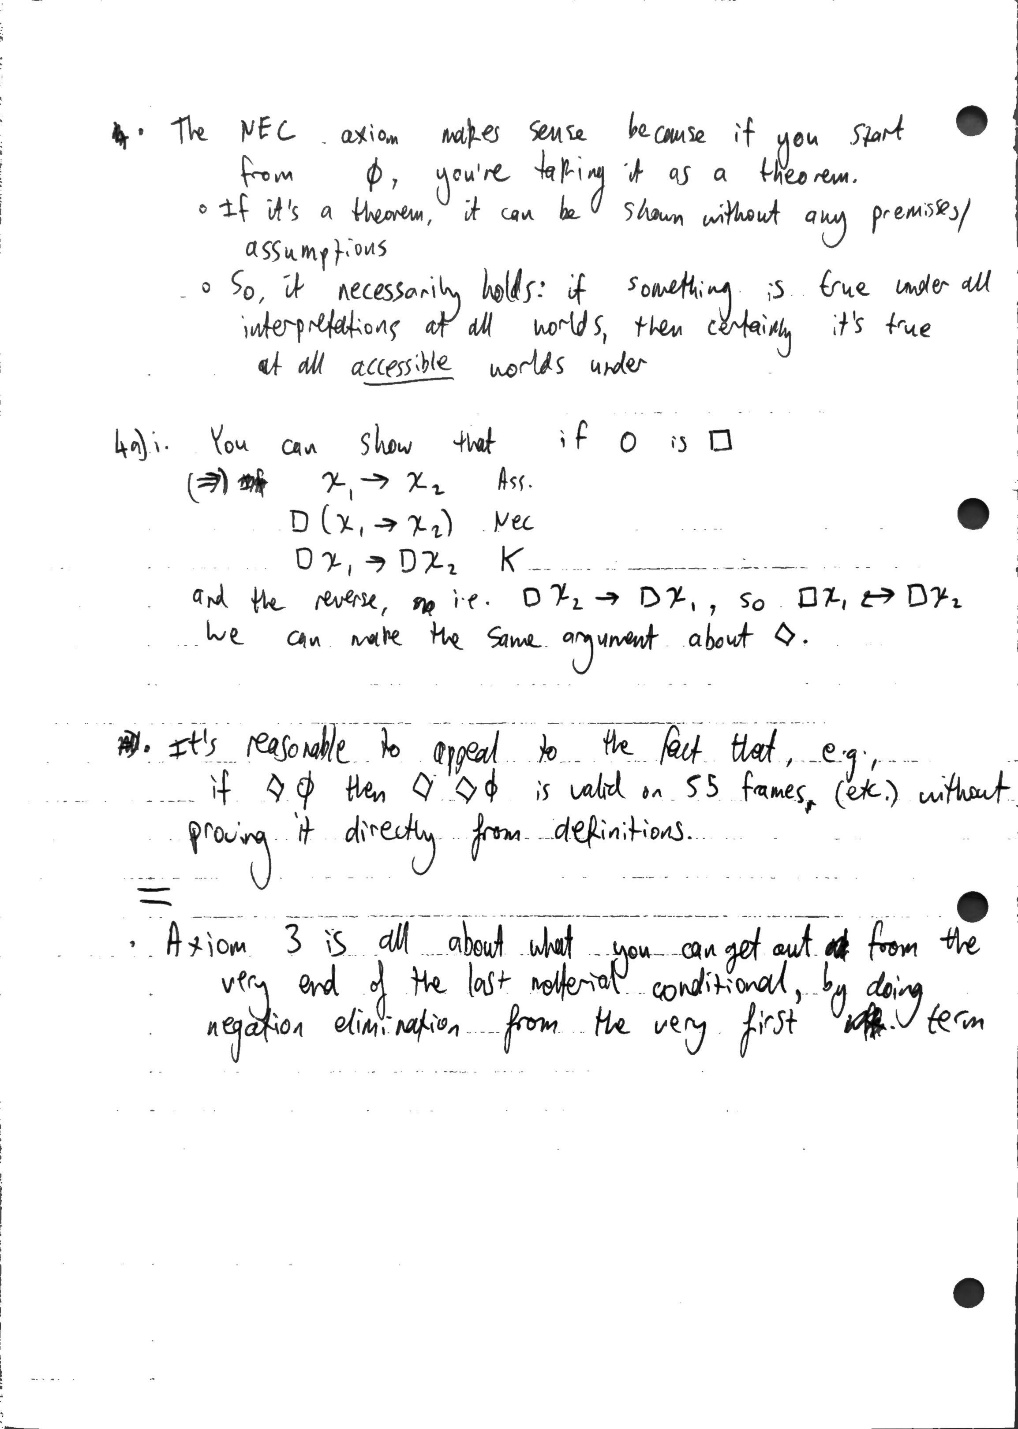 • The NEC axiom makes sense because if you start
from φ, you're taking it as a theorem.
◦ If it's a theorem, it can be shown without any premises/
assumptions
◦ So, it necessarily holds: if something is true under all
interpretations at all worlds, then certainly it's true
at all accessible worlds under
4a)i. You can show that if O is □
(⇒) χ₁ → χ₂ Ass.
□(χ₁ → χ₂) Nec
□χ₁ → □χ₂ K
and the reverse, i.e. □χ₂ → □χ₁, so □χ₁ ↔ □χ₂
We can make the same argument about ◇.
• It's reasonable to appeal to the fact that, e.g.,
if ◇φ then ◇◇φ is valid on S5 frames, (etc.) without
proving it directly from definitions.
=
• Axiom 3 is all about what you can get out from the
very end of the last material conditional, by doing
negation elimination from the very first term